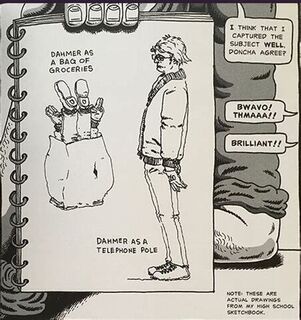 DAHMER AS
A BAG OF
GROCERIES
DAHMER AS A
TELEPHONE POLE
I THINK THAT I
CAPTURED THE
SUBJECT WELL,
DONCHA AGREE?
BWAVO!
THMAAA!!
BRILLIANT!!
NOTE: THESE ARE
ACTUAL DRAWINGS
FROM MY HIGH SCHOOL
SKETCHBOOK.